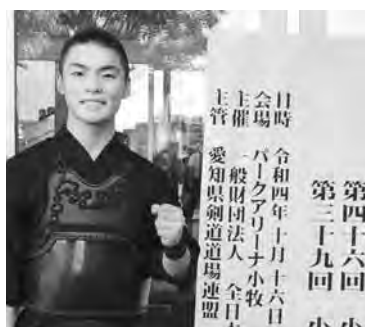 第四十六回 小
第三十九回 小
日時 令和四年十月十六日
会場 パークアリーナ小牧
主催 一般財団法人 全日
主管 愛知県剣道道場連盟